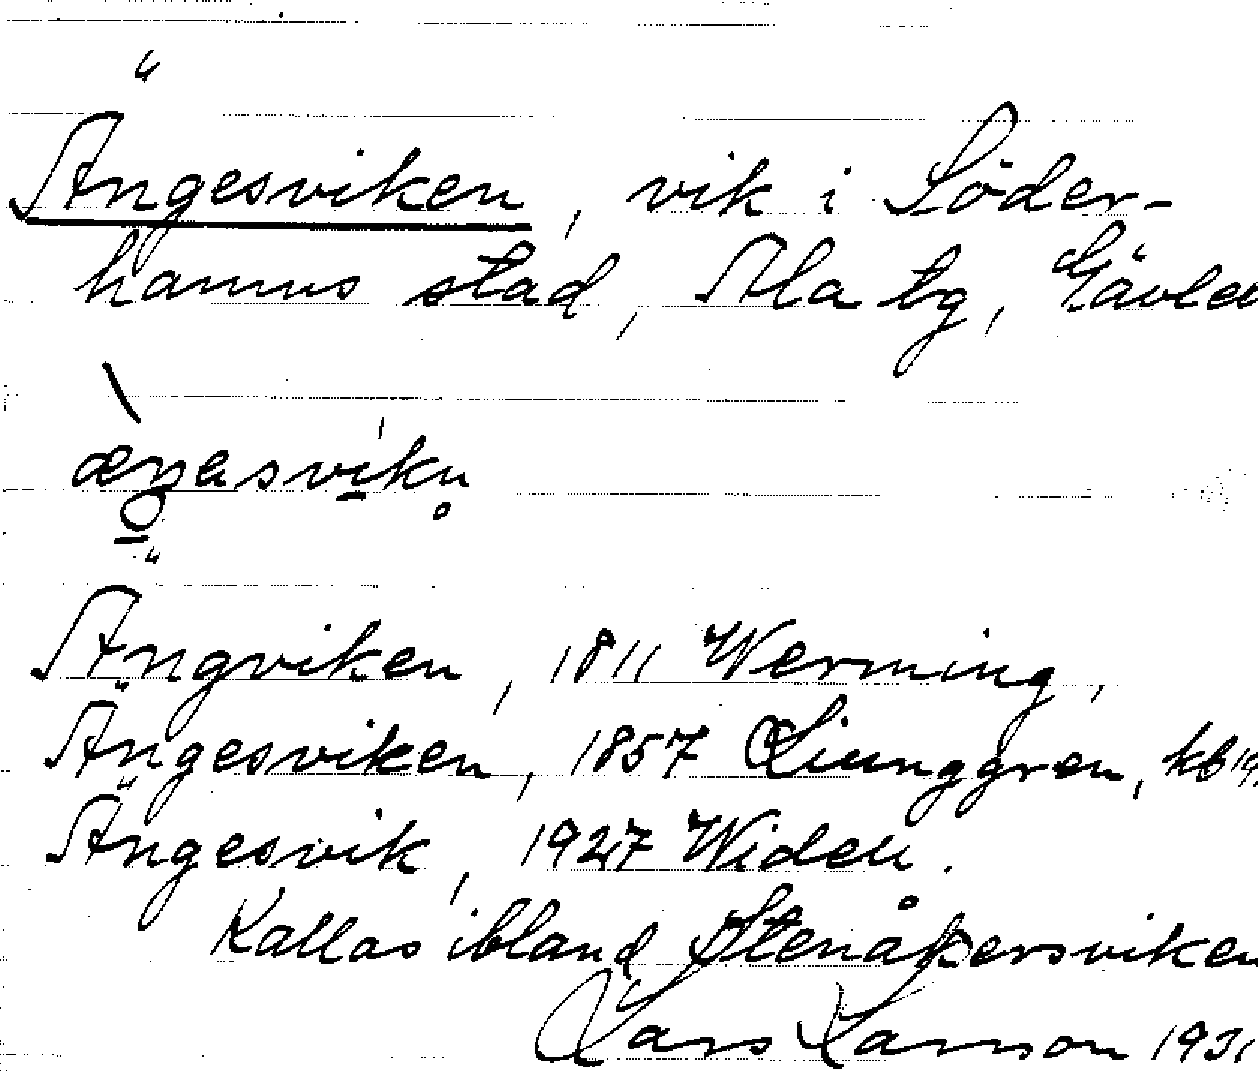 Ängesviken, vik i Söder-
hamns stad, Ala tg, Gävleb
Ängviken, 1811 Werming,
Ängesviken, 1857 Ljunggren, kb
Ängesvik, 1927 Widell.
Kallas ibland Stenåkersviken
Lars Larsson 1931